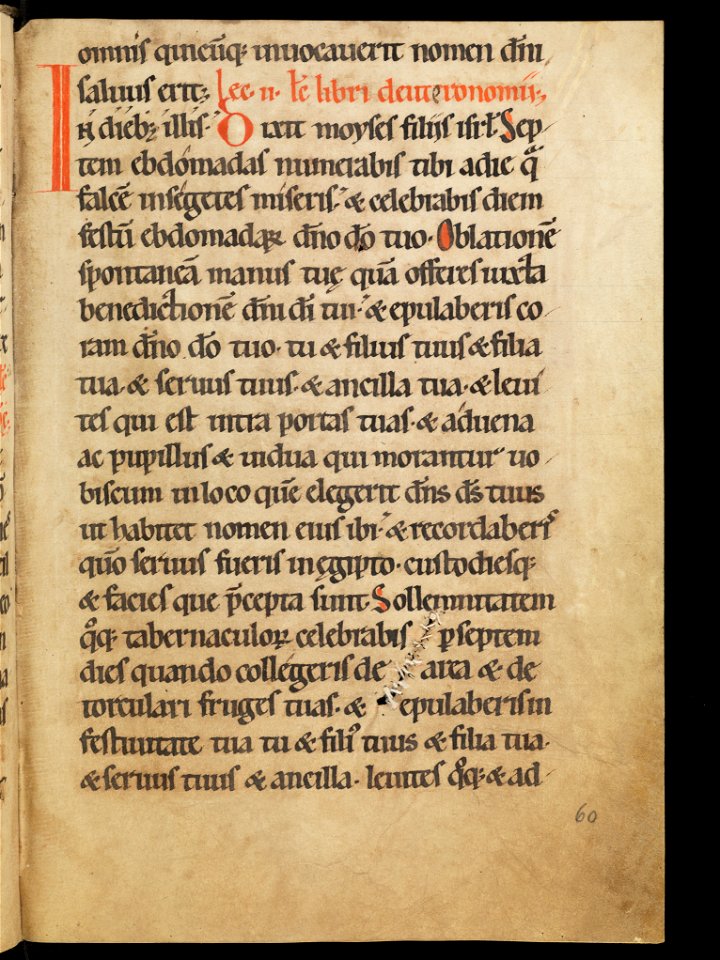 omnis quicūq; inuocauerit nomen dn̄i
saluus erit; Lec. ii. lc̄ libri deuteronomii;
IN dieb; illis. Dixit moyses filiis isrl̄. Sep
tem ebdomadas numerabis tibi a die q̄
falcē in segetes miseris. & celebrabis diem
festū ebdomadaꝝ dn̄o dō tuo. Oblationē
spontaneā manus tuę quā offeres iuxta
benedictionē dn̄i dī tui. & epulaberis co
ram dn̄o dō tuo. tu & filius tuus & filia
tua. & seruus tuus. & ancilla tua. & leui
tes qui est intra portas tuas. & aduena
ac pupillus & uidua qui morantur uo
biscum in loco quē elegerit dn̄s ds̄ tuus
ut habitet nomen eius ibi. & recordaberis
quō seruus fueris in ęgipto. custodiesq;
& facies que p̄cepta sunt. Sollemnitatem
q̊q; tabernaculoꝝ celebrabis ꝑ septem
dies quando collegeris de area & de
torculari fruges tuas. & epulaberis in
festiuitate tua tu & filiꝰ tuus & filia tua.
& seruus tuus & ancilla. leuites q̊q; & ad
60